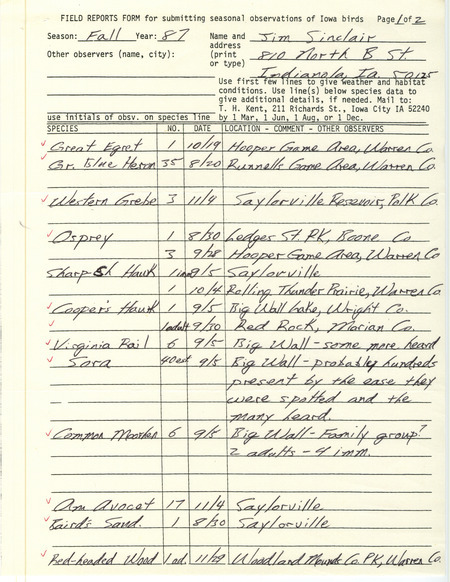 FIELD REPORTS FORM for submitting seasonal observations of Iowa birds Page 1 of 2
Season: Fall Year: 87 Name and Jim Sinclair
address
Other observers (name, city): (print 810 North B St.
or type) Indianola, Ia. 50125
Use first few lines to give weather and habitat
conditions. Use line(s) below species data to
give additional details, if needed. Mail to:
T. H. Kent, 211 Richards St., Iowa City IA 52240
use initials of obsv. on species line by 1 Mar, 1 Jun, 1 Aug, or 1 Dec.
SPECIES NO. DATE LOCATION - COMMENT - OTHER OBSERVERS
Great Egret 1 10/19 Hooper Game Area, Warren Co.
Gr. Blue Heron 35 8/20 Runnells Game Area, Warren Co.
Western Grebe 3 11/4 Saylorville Reservoir, Polk Co.
Osprey 1 8/30 Ledges St. PK, Boone Co
3 9/28 Hooper Game Area, Warren Co
Sharp Sh Hawk 1 imm 9/5 Saylorville
1 10/4 Rolling Thunder Prairie, Warren Co.
Cooper's Hawk 1 9/5 Big Wall Lake, Wright Co.
1 adult 9/30 Red Rock, Marion Co.
Virginia Rail 6 9/5 Big Wall - some more heard
Sora 40 est 9/5 Big Wall - probably hundreds
present by the ease they
were spotted and the
many heard.
Common Moorhen 6 9/5 Big Wall - Family group?
2 adults - 4 imm.
Am Avocet 17 11/4 Saylorville
Baird's Sand. 1 8/30 Saylorville
Red-headed Wood 1 ad. 11/29 Woodland Mounds Co. PK, Warren Co.